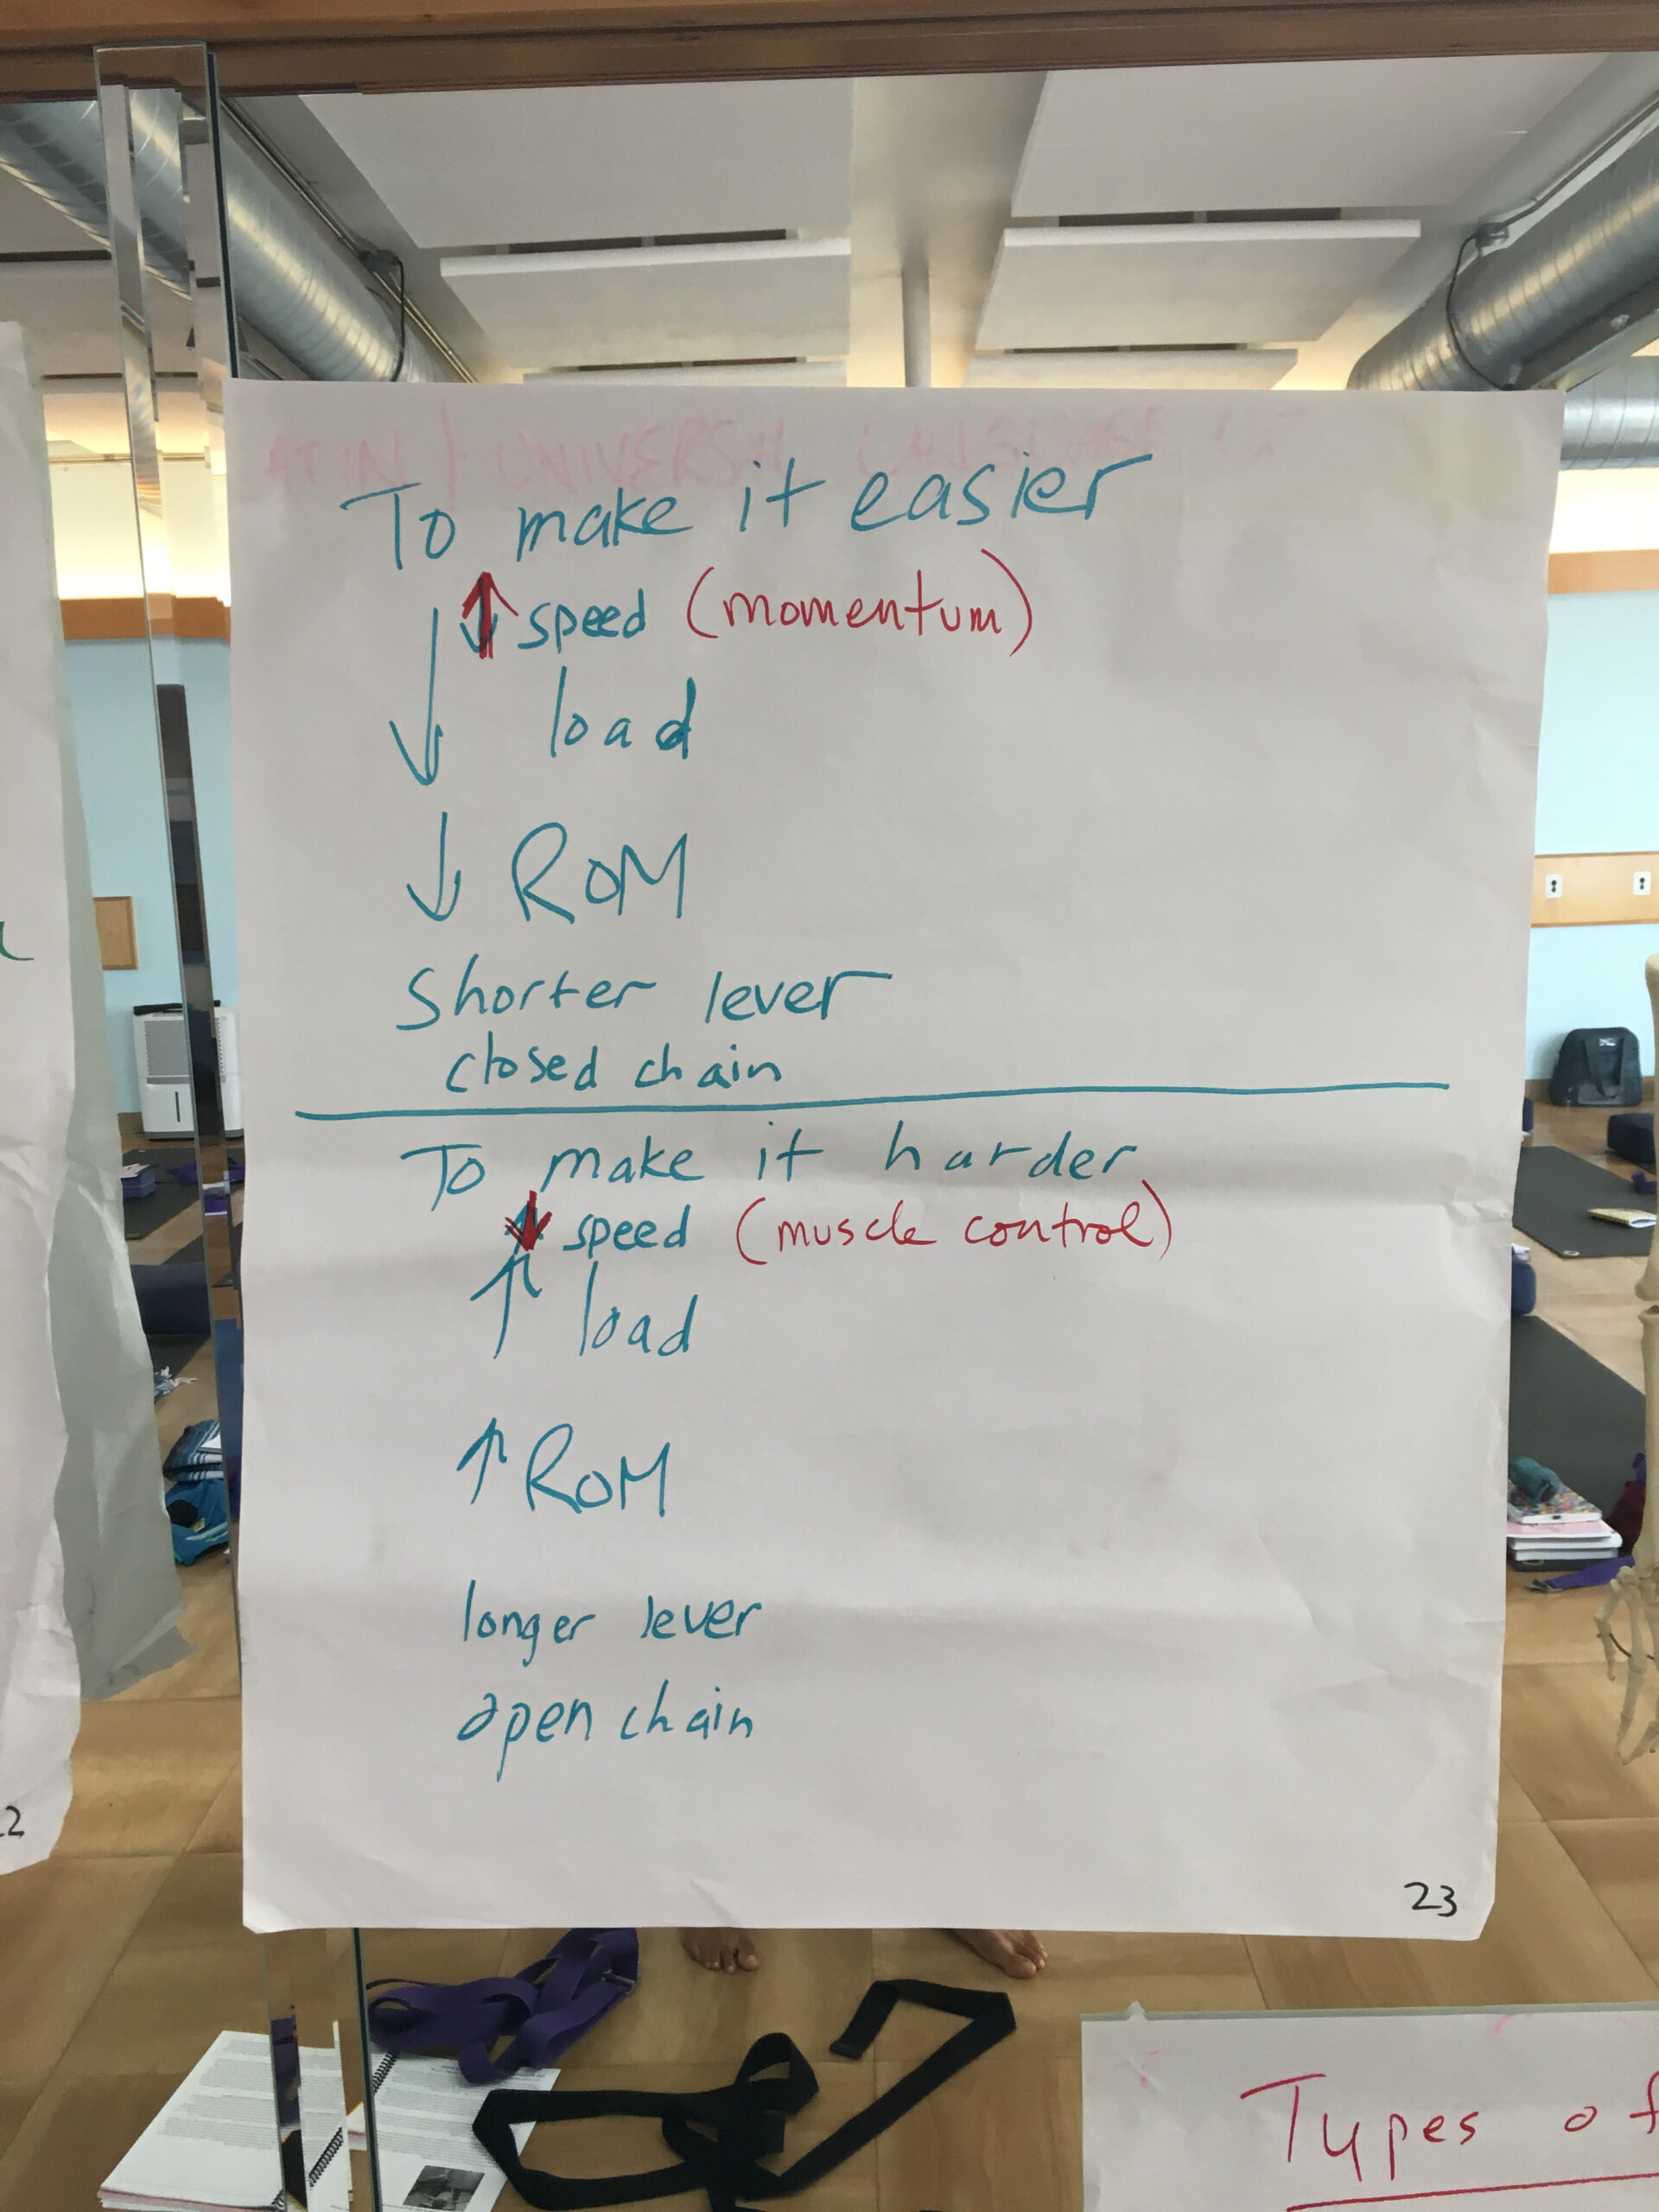 To make it easier
↑ speed (momentum)
↓ load
↓ ROM
Shorter lever
closed chain
To make it harder
↓ speed (muscle control)
↑ load
↑ ROM
longer lever
open chain
23
Types of